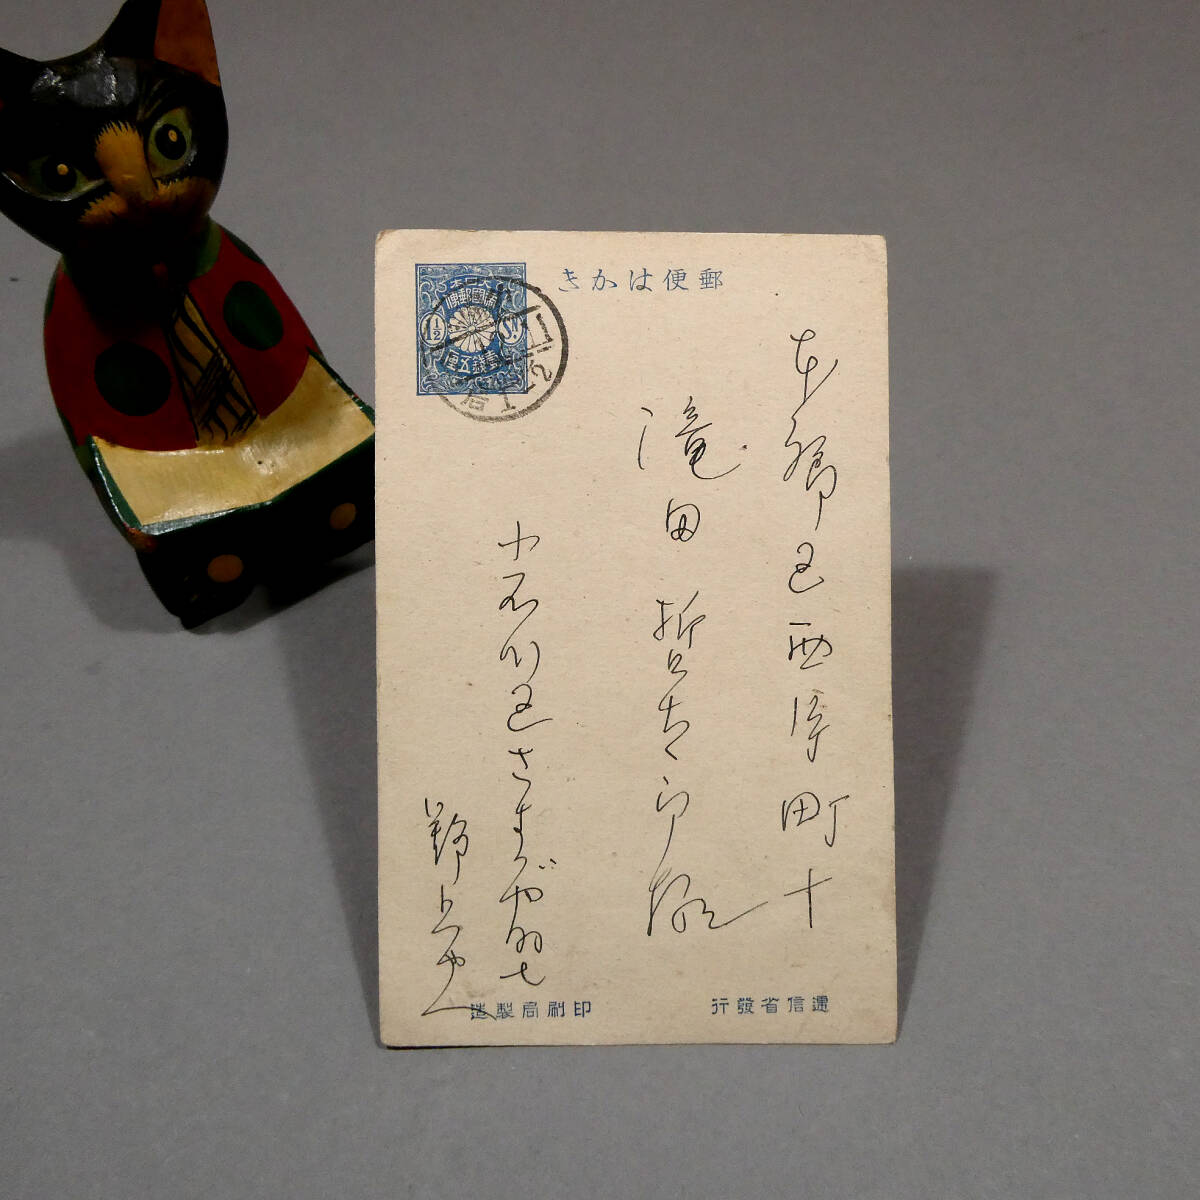 郵便はかき
大日本
帝國郵便
1½ Sn
壹錢五厘
本郷区西片町十
滝田哲太郎様
小石川区さすがや町七
野上
逓信省發行
印刷局製造